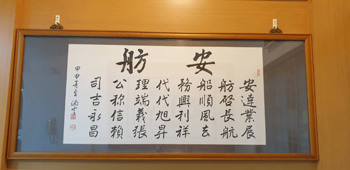 安舫
安達業展
舫啓長航
船順風去
務興利祥
代代旭昇
理端義張
公称信賴
司吉永昌
甲申